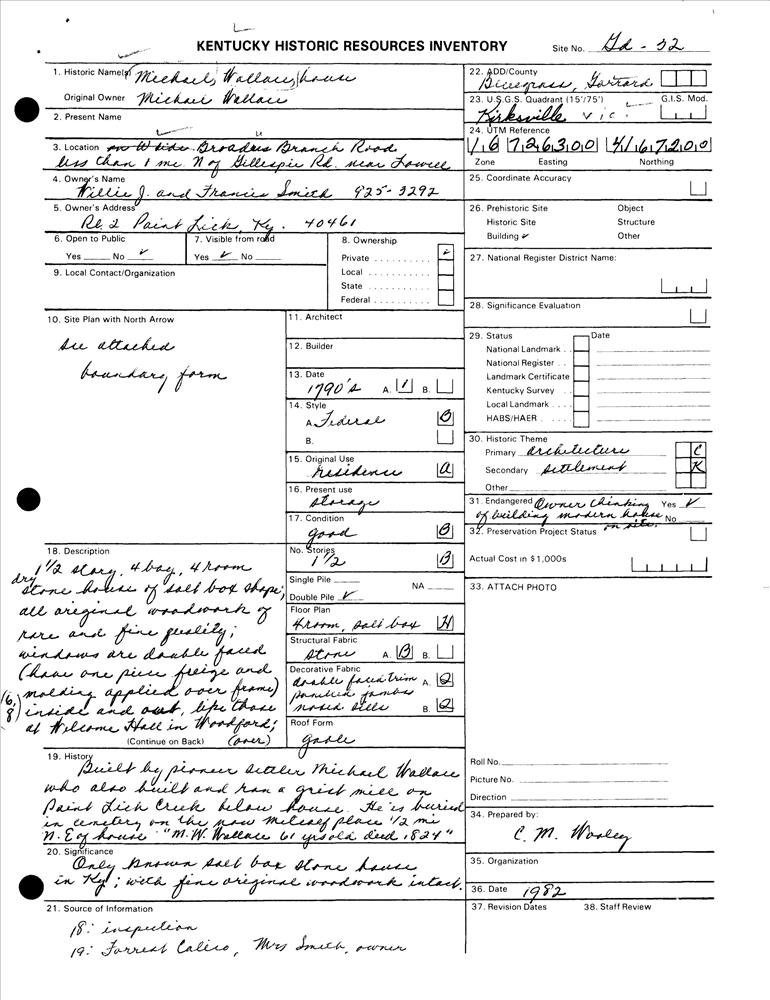 KENTUCKY HISTORIC RESOURCES INVENTORY
Site No. Gd - 32
1. Historic Name(s) Michael Wallace house
Original Owner Michael Wallace
2. Present Name
3. Location on W side Broaddus Branch Road
less than 1 mi. N of Gillespie Rd. near Lowell
4. Owner's Name
Willie J. and Francis Smith 925-3292
5. Owner's Address
Rt. 2 Paint Lick, Ky. 40461
6. Open to Public
Yes No ✓
7. Visible from road
Yes ✓ No
8. Ownership
Private ✓
Local
State
Federal
9. Local Contact/Organization
10. Site Plan with North Arrow
see attached
boundary form
11. Architect
12. Builder
13. Date
1790's A. 1 B.
14. Style
A. Federal B
B.
15. Original Use
residence A
16. Present use
storage
17. Condition
good B
18. Description
1 1/2 story, 4 bay, 4 room
dry stone house of salt box shape;
all original woodwork of
rare and fine quality;
windows are double faced
(have one piece freize and
molding applied over frame)
inside and out, like those
at Welcome Hall in Woodford;
(Continue on Back) (over)
No. Stories
1 1/2 B
Single Pile NA
Double Pile ✓
Floor Plan
4 room, salt box H
Structural Fabric
stone A. B B.
Decorative Fabric
double faced trim A. Q
paneled jambs
nosed sills B. Q
Roof Form
gable
19. History
Built by pioneer settler Michael Wallace
who also built and ran a grist mill on
Paint Lick Creek below house. He is buried
in cemetery on the now Metcalf place 1/2 mi
N.E of house "M.W. Wallace 61 yrs old deed 1824"
20. Significance
Only known salt box stone house
in Ky; with fine original woodwork intact.
21. Source of Information
18: inspection
19: Forrest Calico, Mrs Smith, owner
22. ADD/County
Bluegrass, Garrard
23. U.S.G.S. Quadrant (15'/75') G.I.S. Mod.
Kirksville Vic.
24. UTM Reference
16 726300 4167200
Zone Easting Northing
25. Coordinate Accuracy
26. Prehistoric Site Object
Historic Site Structure
Building ✓ Other
27. National Register District Name:
28. Significance Evaluation
29. Status Date
National Landmark
National Register
Landmark Certificate
Kentucky Survey
Local Landmark
HABS/HAER
30. Historic Theme
Primary architecture C
Secondary settlement K
Other
31. Endangered Owner thinking Yes ✓
of building modern house No
on site.
32. Preservation Project Status
Actual Cost in $1,000s
33. ATTACH PHOTO
Roll No.
Picture No.
Direction
34. Prepared by:
C. M. Wooley
35. Organization
36. Date 1982
37. Revision Dates 38. Staff Review